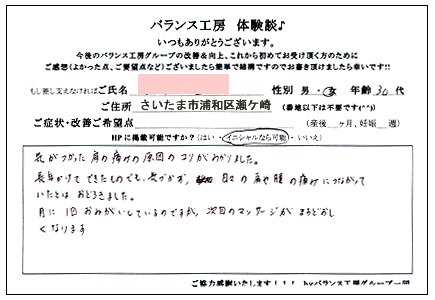 バランス工房 体験談♪
いつもありがとうございます。
今後のバランス工房グループの改善&向上、これから初めてお受け頂く方のために
ご感想(よかった点、ご要望点など)ございましたら簡単で結構ですのでお書き頂けましたら幸いです!!
もし差し支えなければご氏名 性別 男・女 年齢 30 代
ご住所 さいたま市浦和区瀬ケ崎 (番地以下は不要です(^^))
ご症状・改善ご希望点 (産後 ヶ月、妊娠 週)
HPに掲載可能ですか?(はい・イニシャルなら可能・いいえ)
気がつかなかった肩の痛みの原因のコリがわかりました。
長年かけてできたものでも、気づかず、日々の肩や腰の痛みにつながって
いたとはおどろきました。
月に1回おねがいしているのですが、次回のマッサージがまちどおし
くなります
ご協力感謝いたします!!! byバランス工房グループ一同